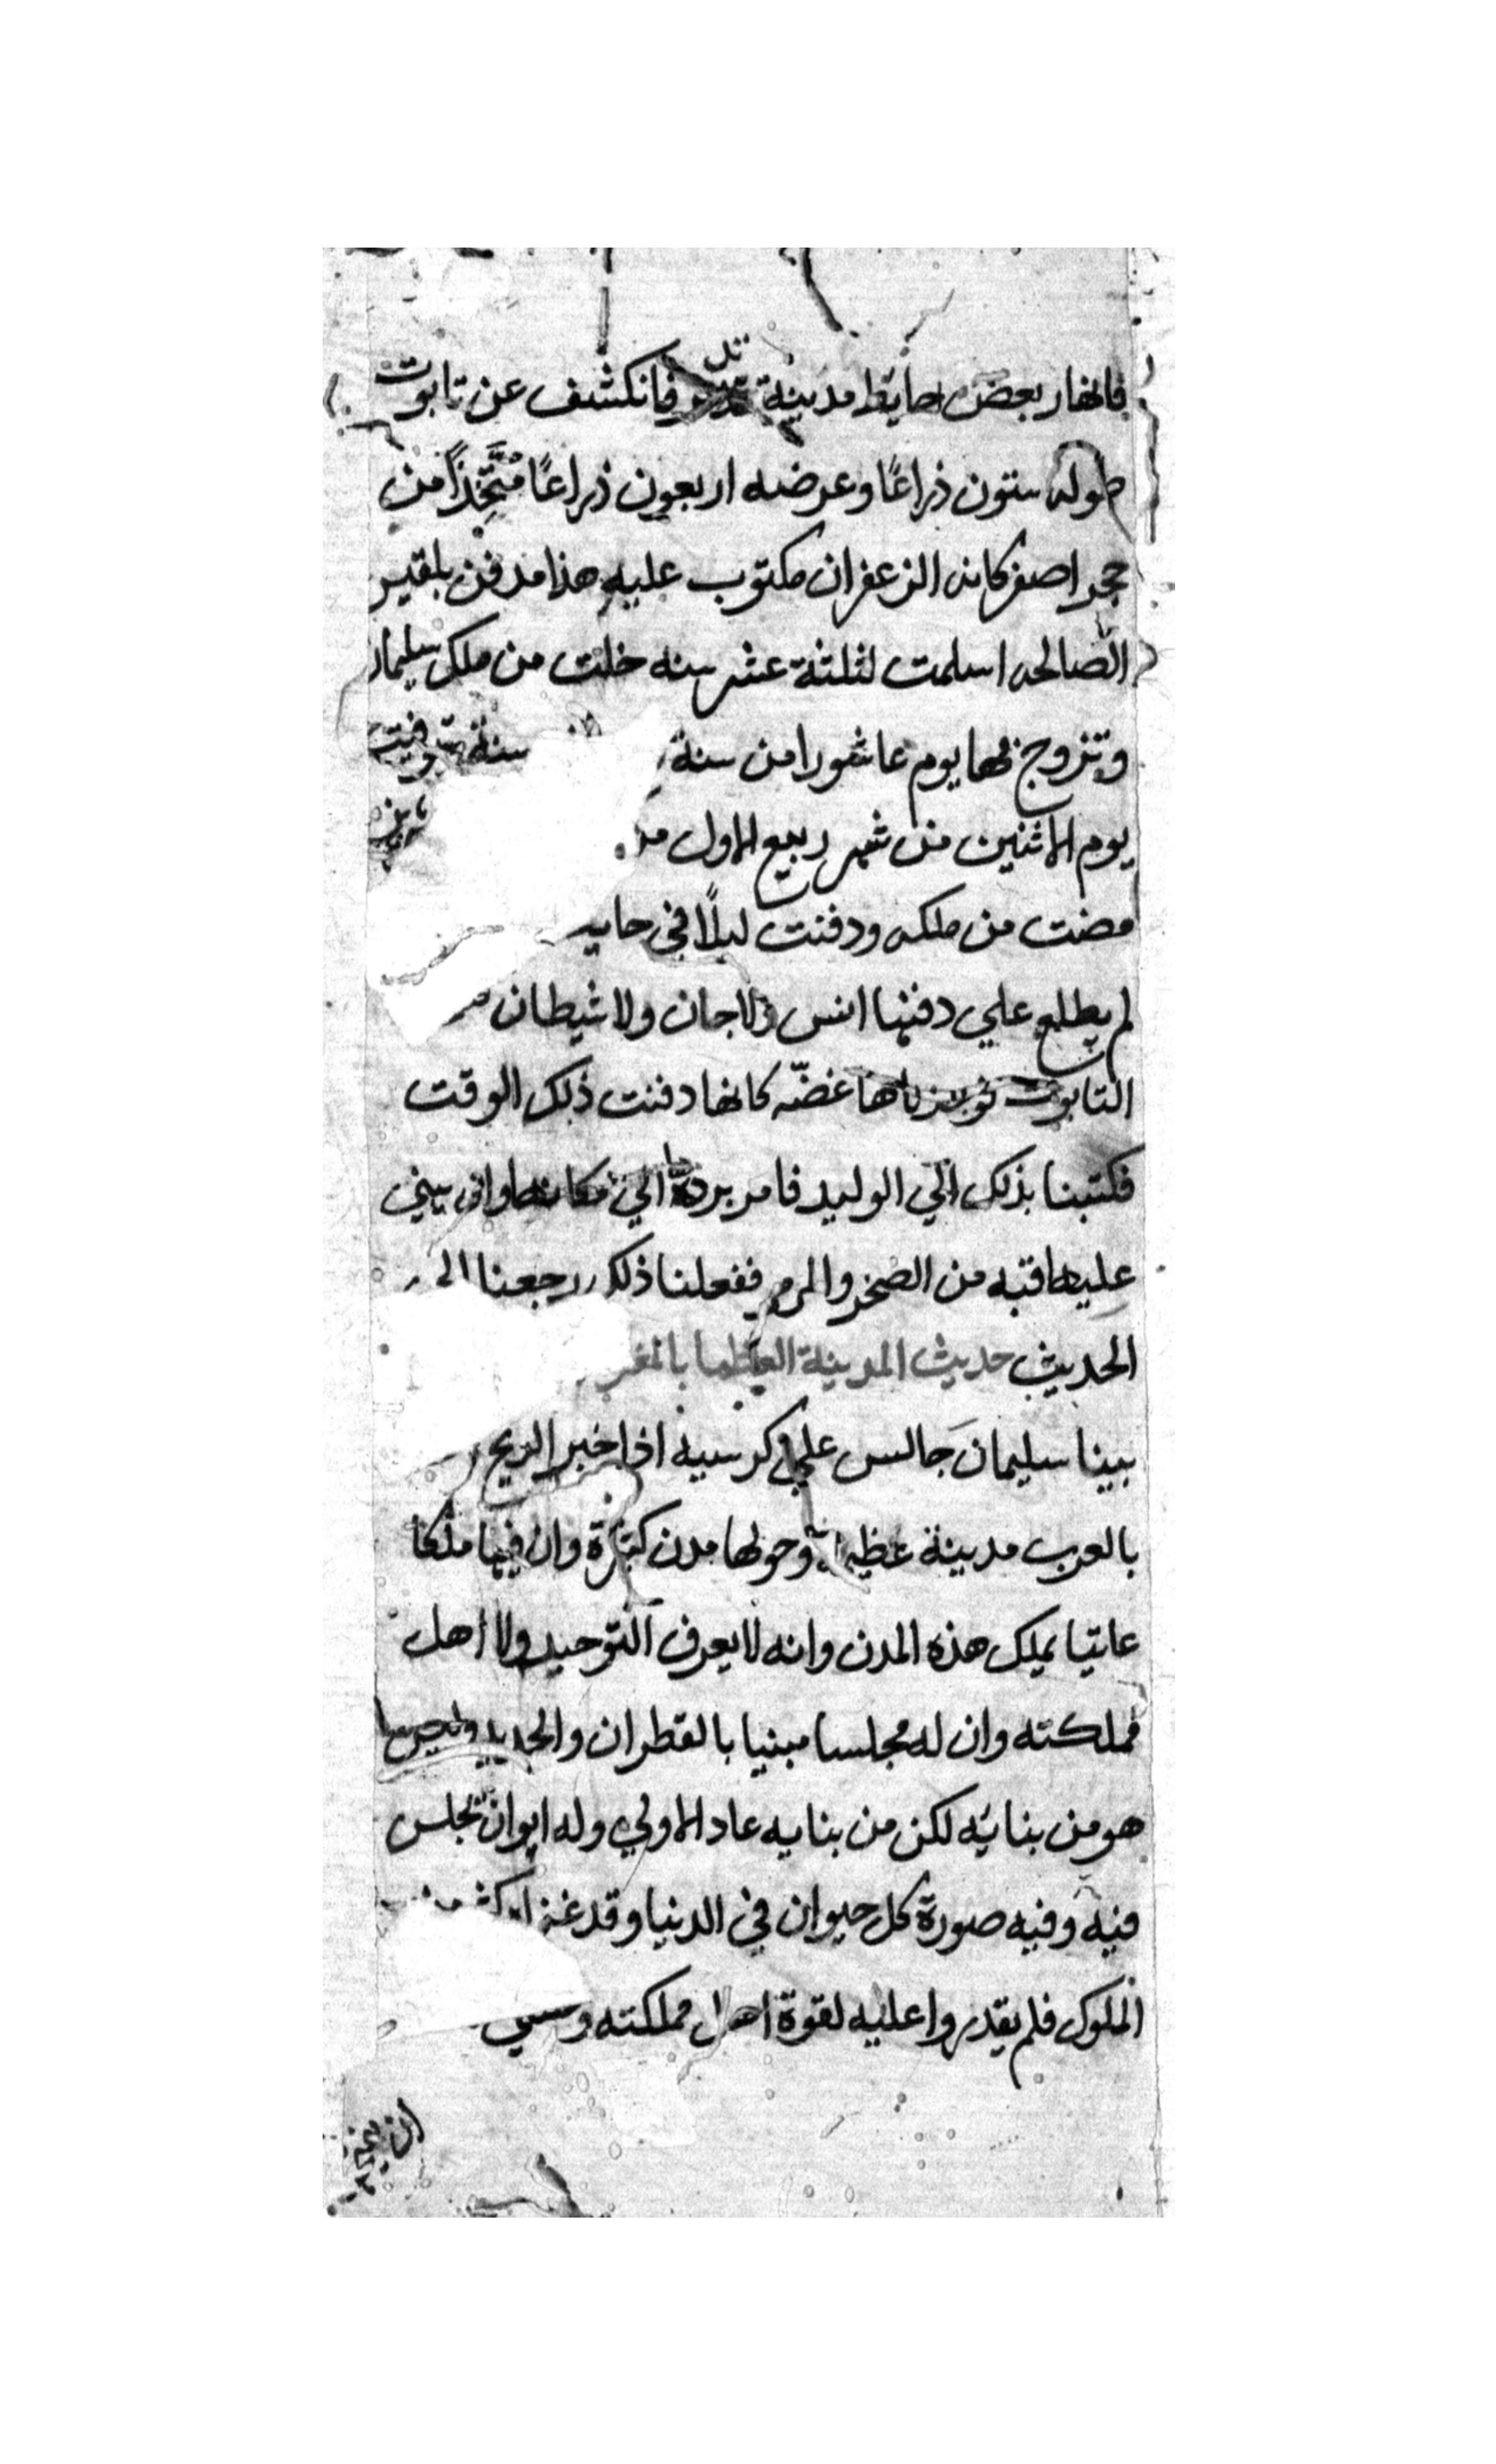 فانهار بعض حايط مدينة تدمر فانكشف عن تابوت
طوله ستون ذراعًا وعرضه اربعون ذراعًا مُتَّخِذًا من
حجر اصفر كانه الزعفران مكتوب عليه هذا مدفن بلقيس
الصالحه اسلمت لثلثة عشر سنه خلت من ملك سليمان
وتزوج بها يوم عاشورا من سنة سنة توفيت
يوم الاثنين من شهر ربيع الاول
مضت من ملكه ودفنت ليلًا في
لم يطلع علي دفنها انس ولا جان ولا شيطان
التابوت غضّه كانها دفنت ذلك الوقت
فكتبنا بذلك الي الوليد فامر بردة الي مكانها وان يبني
عليها قبه من الصخر والمرمر ففعلنا ذلك ورجعنا الى
الحديث حديث المدينة العظما
بينا سليمانَ جالس علي كرسيه اذا خبر الريح
بالعرب مدينة عظيمة وحولها مدن كثيرة وان فيها ملكا
عاتيا يملك هذه المدن وانه لا يعرف التوحيد ولا اهل
مملكته وان له مجلسا مبنيا بالقطران والحديد وليس
هو من بنائه لكن من بنايه عاد الاولي وله ايوان تجلس
فيه وفيه صورة كل حيوان في الدنيا وقد
الملوك فلم يقدروا عليه لقوة اهل مملكته